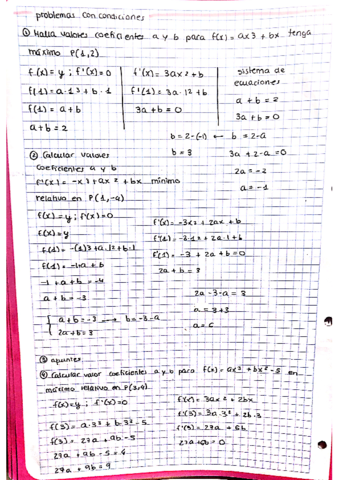 problemas con condiciones
① Halla valores coeficientes a y b para f(x) = ax3 + bx tenga
máximo P(1,2)
f(x) = y ; f'(x) = 0
f(1) = a·1³ + b·1
f(1) = a + b
a + b = 2
f'(x) = 3ax² + b
f'(1) = 3a·1² + b
3a + b = 0
sistema de
ecuaciones
a + b = 2
3a + b = 0
b = 2-(-1) ← b = 2-a
b = 3
3a + 2 - a = 0
2a = -2
a = -1
② Calcular valores
coeficientes a y b
f'(x) = -x³ + ax² + bx mínimo
relativo en P(1,-4)
f(x) = y ; f'(x) = 0
f(x) = y
f(1) = -(1)3 + a·1² + b·1
f(1) = -1 + a + b
-1 + a + b = -4
a + b = -3
f'(x) = -3x² + 2ax + b
f'(1) = -3·1² + 2a·1 + b
f'(1) = -3 + 2a + b = 0
2a + b = 3
a + b = -3 → b = -3 - a
2a + b = 3
2a - 3 - a = 3
a = 3 + 3
a = 6
③ apuntes
④ Calcular valor coeficientes a y b para f(x) = ax³ + bx² - 5 en
máximo relativo en P(3,4)
f(x) = y ; f'(x) = 0
f(3) = a·3³ + b·3² - 5
f(3) = 27a + 9b - 5
27a + 9b - 5 = 4
27a + 9b = 9
f'(x) = 3ax² + 2bx
f'(3) = 3a·3² + 2b·3
f'(3) = 27a + 6b
27a + 6b = 0